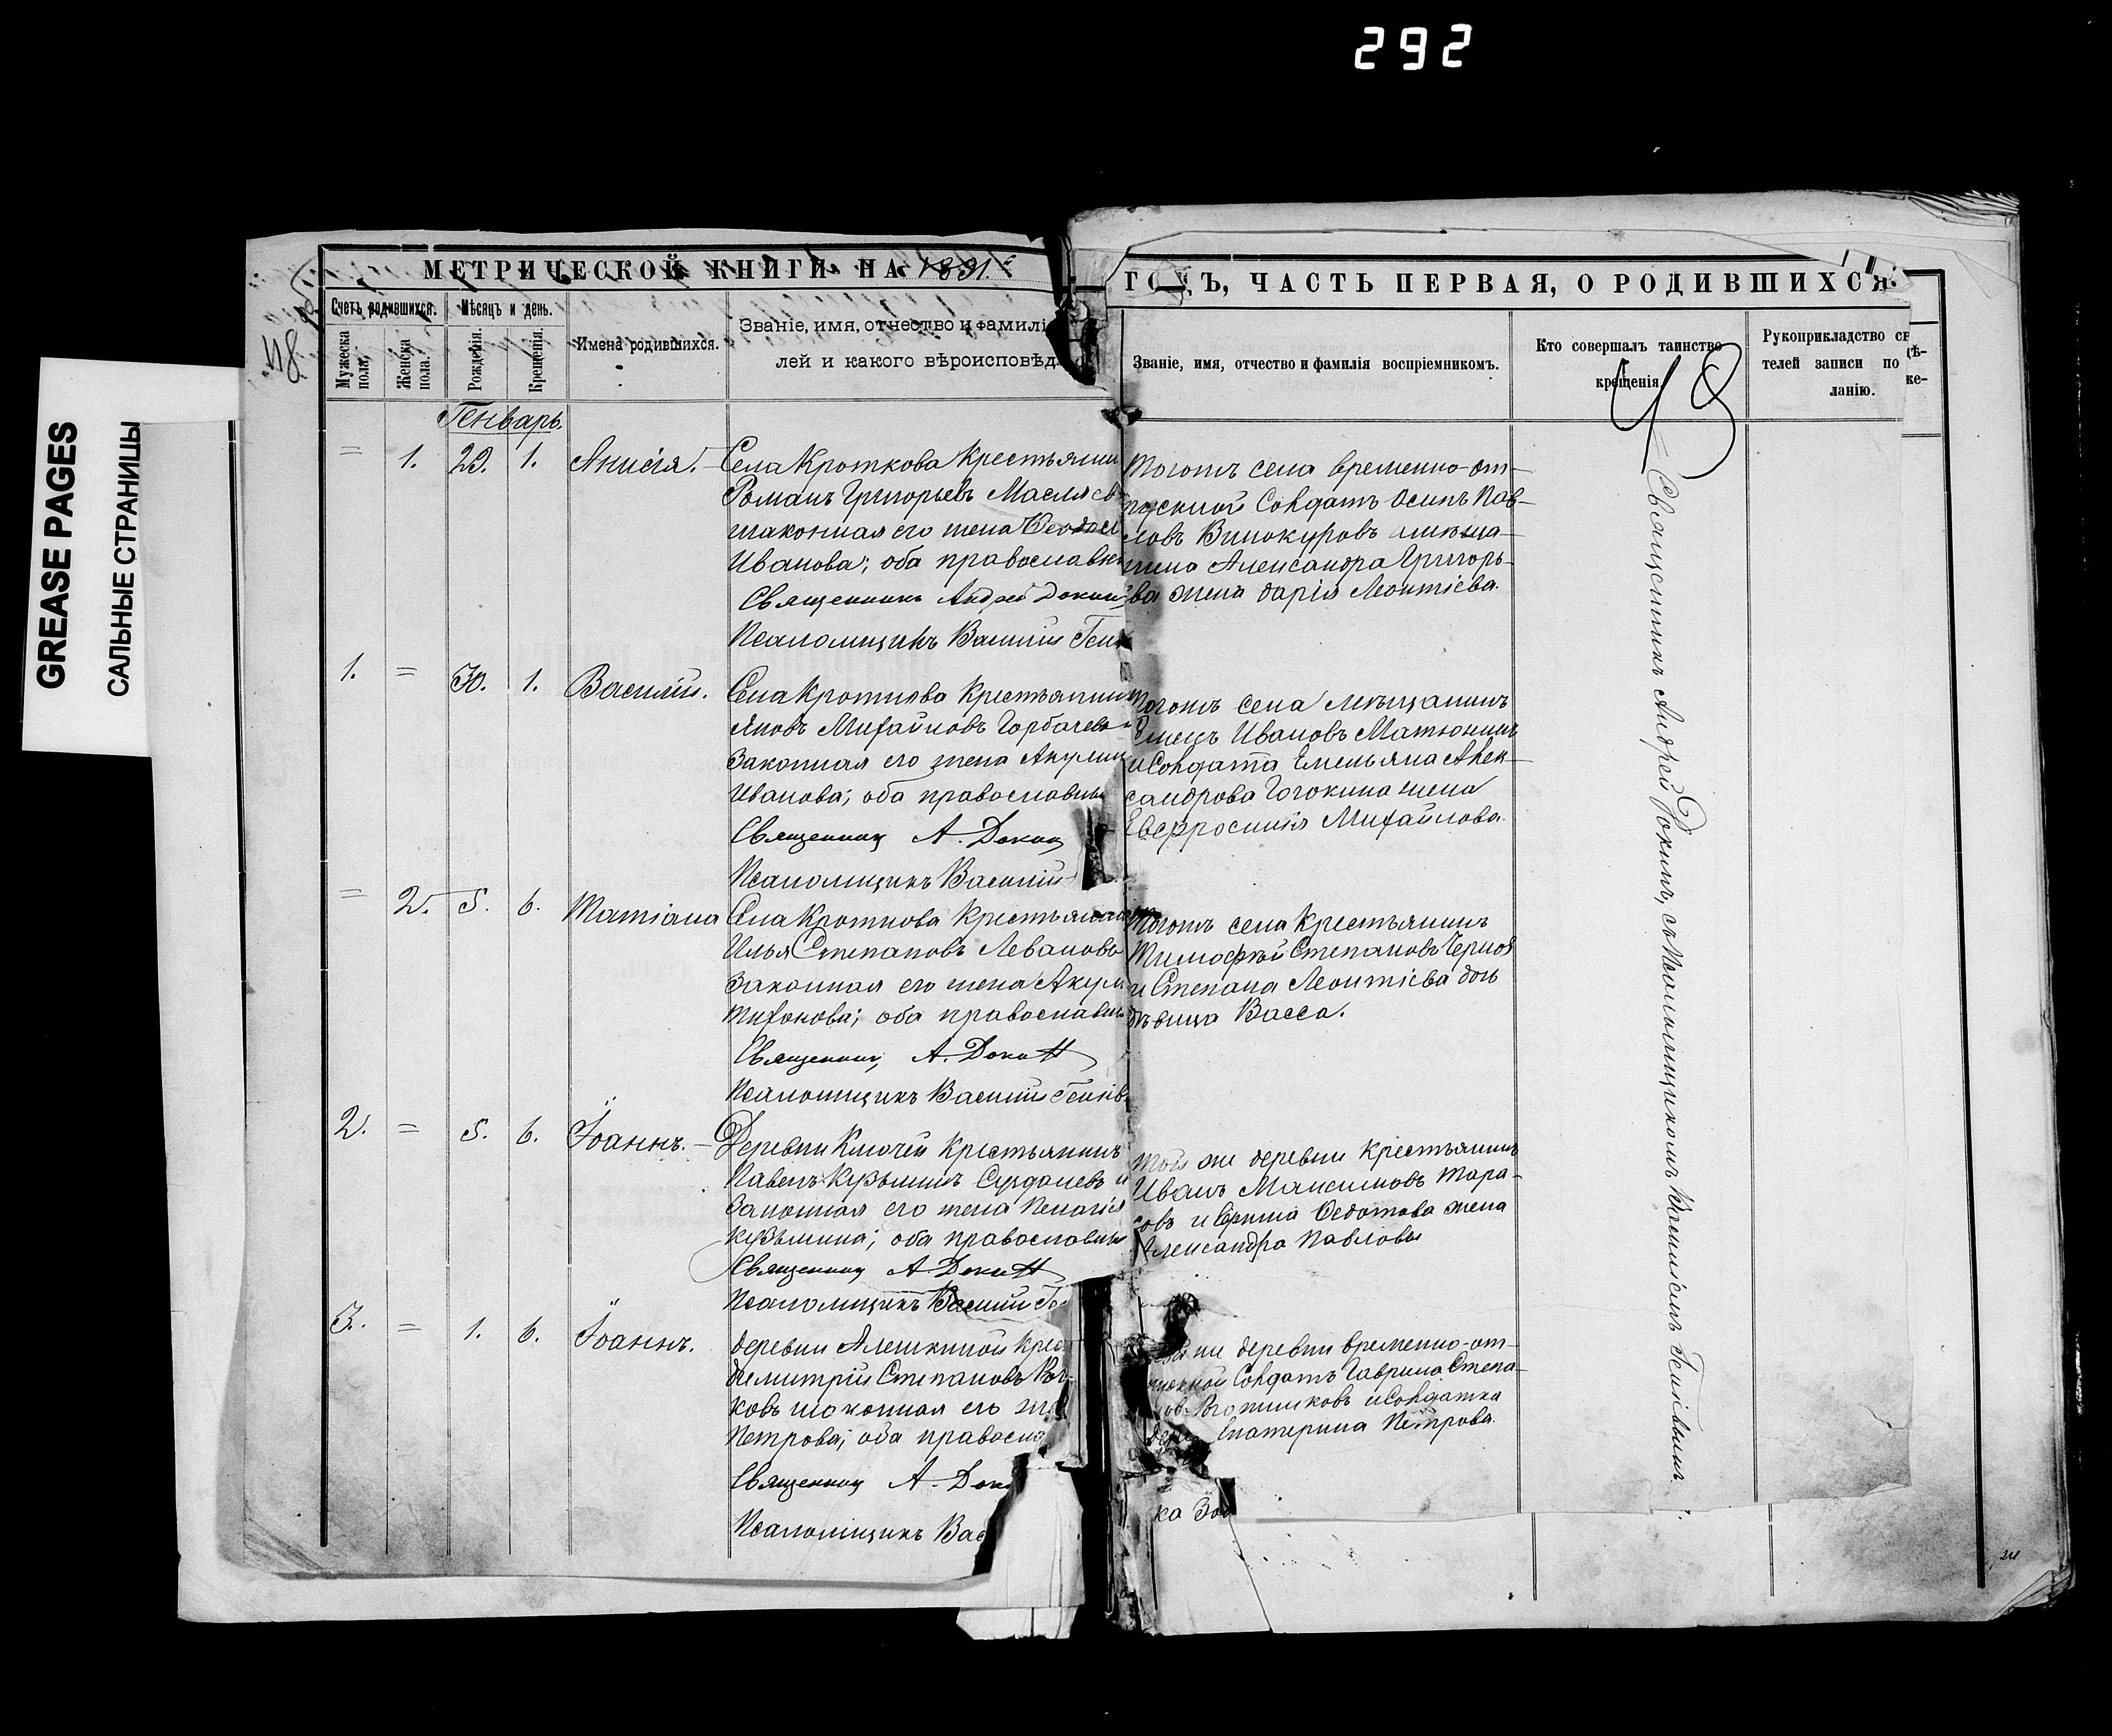 292
GREASE PAGES
САЛЬНЫЕ СТРАНИЦЫ
МЕТРИЧЕСКОЙ КНИГИ НА 1891й
ГОДЪ, ЧАСТЬ ПЕРВАЯ, О РОДИВШИХСЯ.
Счетъ родившихся.
Мѣсяцъ и день.
Мужеска пола.
Женска пола.
Рожденія.
Крещенія.
Имена родившихся.
Званіе, имя, отчество и фамилі
лей и какого вѣроисповѣд
Званіе, имя, отчество и фамилія воспріемниковъ.
Кто совершалъ таинство
крещенія.
Рукоприкладство св
телей записи по
ланію.
дѣ-
же-
48
Генварь.
= 1. 29. 1. Анисія.
Села Кроткова Крестьянин
Романъ Григорьевъ Масляев
изаконная его жена Ѳеодос
Иванова; оба православн
Священникъ Андрей Докин
Псаломщикъ Василій Ген
Тогожъ села временно-от-
пускной Солдатъ Осипъ Пав-
ловъ Винокуровъ имѣща-
нина Александра Григорь-
ва жена Дарія Леонтіева.
1. = 30. 1. Василій.
Села Кроткова Крестьянин
Яковъ Михайловъ Горбачев
законная его жена Акулин
Иванова; оба православны
Священникъ А. Докин
Псаломщикъ Василій
тогожъ села мѣщанинъ
Ивановъ Матюнинъ
и Солдата Емельяна Алек-
сандрова жена
Евфросинія Михайлова.
= 2. 5. 6. Татіана
Села Кроткова Крестьянин
Илья Степановъ Левановъ
законная его жена Акул
Тихонова; оба православны
Священникъ А. Докин
Псаломщикъ Василій Гені
Тогожъ села Крестьянинъ
Тимофѣй Степановъ Чернов
и Степана Леонтіева дочь
дѣвица Васса.
2. = 5. 6. Іоаннъ.
Деревни Ключей Крестьянинъ
Павелъ Кузьминъ Суздалевъ и
Законная его жена Пелагія
Кузьмина; оба православны
Священникъ А. Докин
Псаломщикъ Василій Ге
той же деревни Крестьянинъ
Иванъ Максимовъ Тара-
совъ и Ѳедотова жена
Александра Павлова
3. = 1. 6. Іоаннъ.
Деревни Алешкиной Крес
Димитрій Степановъ
ковъ изаконная его же
Петрова; оба правосла
Священникъ А. Док
Псаломщикъ Вас
же деревни временно-от-
Солдатъ Гаврила Степа-
и Солдатка
Екатерина Петрова.
ка Зав
Священникъ Андрей Докинъ, съ Псаломщикомъ Василіемъ